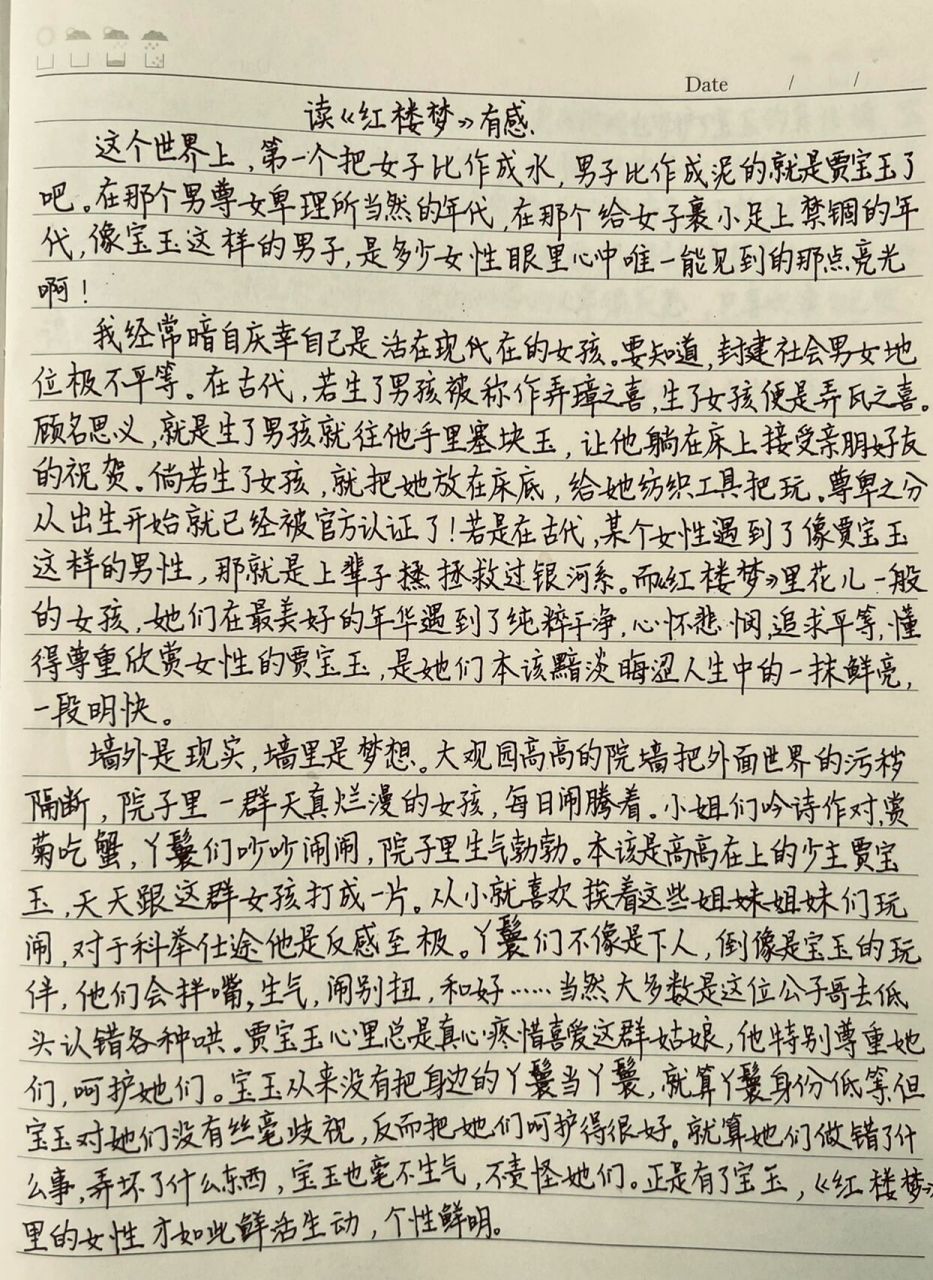 Date / /
读《红楼梦》有感
这个世界上，第一个把女子比作成水，男子比作成泥的就是贾宝玉了
吧。在那个男尊女卑理所当然的年代，在那个给女子裹小足上禁锢的年
代，像宝玉这样的男子，是多少女性眼里心中唯一能见到的那点亮光
啊！
我经常暗自庆幸自己是活在现代在的女孩。要知道，封建社会男女地
位极不平等。在古代，若生了男孩被称作弄璋之喜，生了女孩便是弄瓦之喜。
顾名思义，就是生了男孩就往他手里塞块玉，让他躺在床上接受亲朋好友
的祝贺。倘若生了女孩，就把她放在床底，给她纺织工具把玩。尊卑之分
从出生开始就已经被官方认证了！若是在古代，某个女性遇到了像贾宝玉
这样的男性，那就是上辈子拯救过银河系。而《红楼梦》里花儿一般
的女孩，她们在最美好的年华遇到了纯粹干净，心怀悲悯，追求平等，懂
得尊重欣赏女性的贾宝玉，是她们本该黯淡晦涩人生中的一抹鲜亮，
一段明快。
墙外是现实，墙里是梦想。大观园高高的院墙把外面世界的污秽
隔断，院子里一群天真烂漫的女孩，每日闹腾着。小姐们吟诗作对，赏
菊吃蟹，丫鬟们吵吵闹闹，院子里生气勃勃。本该是高高在上的少主贾宝
玉，天天跟这群女孩打成一片。从小就喜欢挨着这些姐妹姐妹们玩
闹，对于科举仕途他是反感至极。丫鬟们不像是下人，倒像是宝玉的玩
伴，他们会拌嘴，生气，闹别扭，和好……当然大多数是这位公子哥去低
头认错各种哄。贾宝玉心里总是真心疼惜喜爱这群姑娘，他特别尊重她
们，呵护她们。宝玉从来没有把身边的丫鬟当丫鬟，就算丫鬟身份低等，但
宝玉对她们没有丝毫歧视，反而把她们呵护得很好。就算她们做错了什
么事，弄坏了什么东西，宝玉也毫不生气，不责怪她们。正是有了宝玉，《红楼梦》
里的女性才如此鲜活生动，个性鲜明。